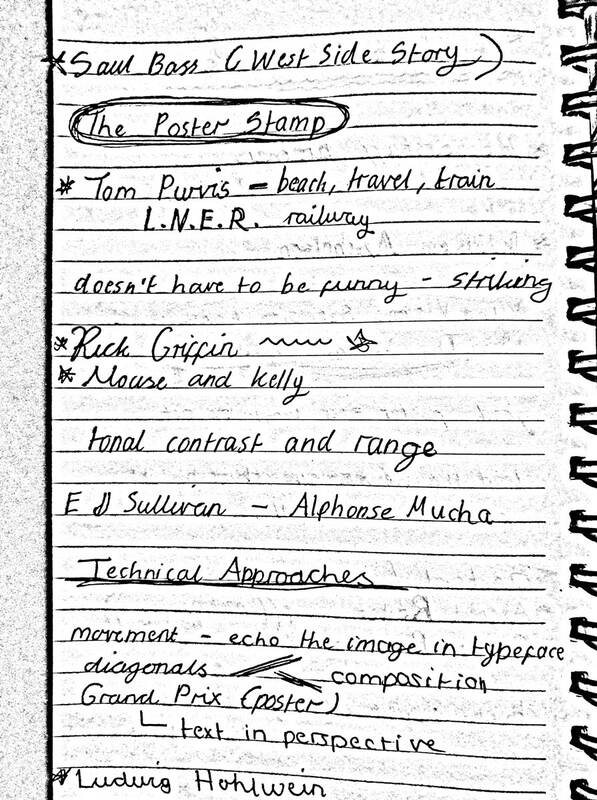 * Saul Bass (West Side Story)
The Poster Stamp
* Tom Purvis - beach, travel, train
L.N.E.R. railway
doesn't have to be funny - striking
* Rick Griffin
* Mouse and Kelly
tonal contrast and range
E J Sullivan - Alphonse Mucha
Technical Approaches
movement - echo the image in typeface
diagonals composition
Grand Prix (poster)
text in perspective
* Ludwig Hohlwein